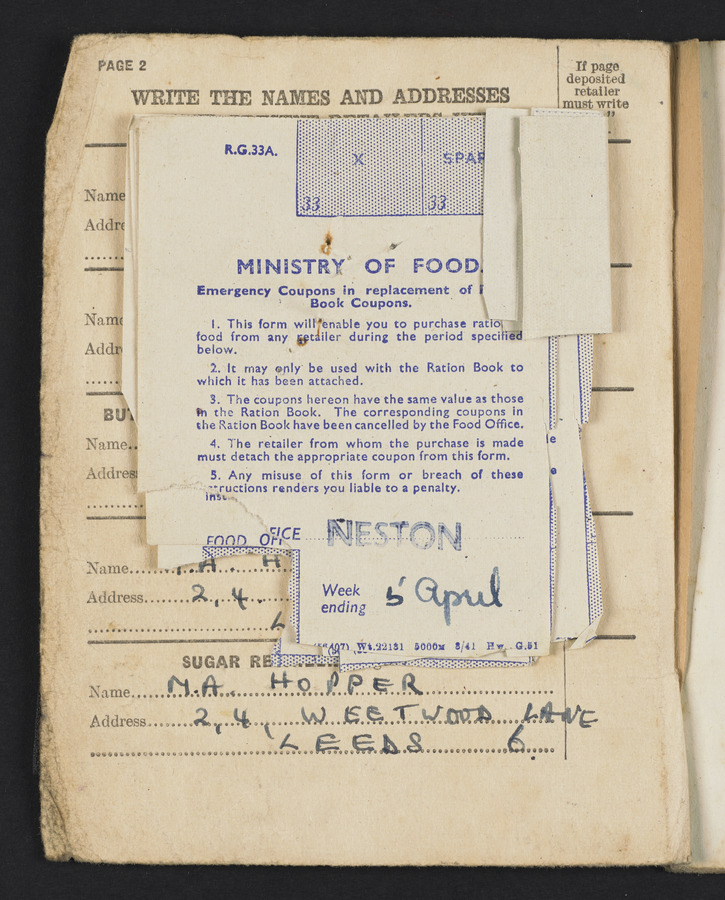 PAGE 2
If page
deposited
retailer
must write
WRITE THE NAMES AND ADDRESSES
R.G.33A.
X
SPAR
33
33
Name
Addre
MINISTRY OF FOOD.
Emergency Coupons in replacement of
Book Coupons.
1. This form will enable you to purchase ratio
food from any retailer during the period specified
below.
2. It may only be used with the Ration Book to
which it has been attached.
3. The coupons hereon have the same value as those
in the Ration Book. The corresponding coupons in
the Ration Book have been cancelled by the Food Office.
4. The retailer from whom the purchase is made
must detach the appropriate coupon from this form.
5. Any misuse of this form or breach of these
instructions renders you liable to a penalty.
Name
Addr
BU
Name..
Addres
FOOD OFFICE NESTON
Week
ending 5 April
Wt.22131 5000M 8/41 Hw. G.51
Name
Address 2, 4.
SUGAR RE
Name M.A. HOPPER
Address 2, 4, WEETWOOD LANE
LEEDS 6.